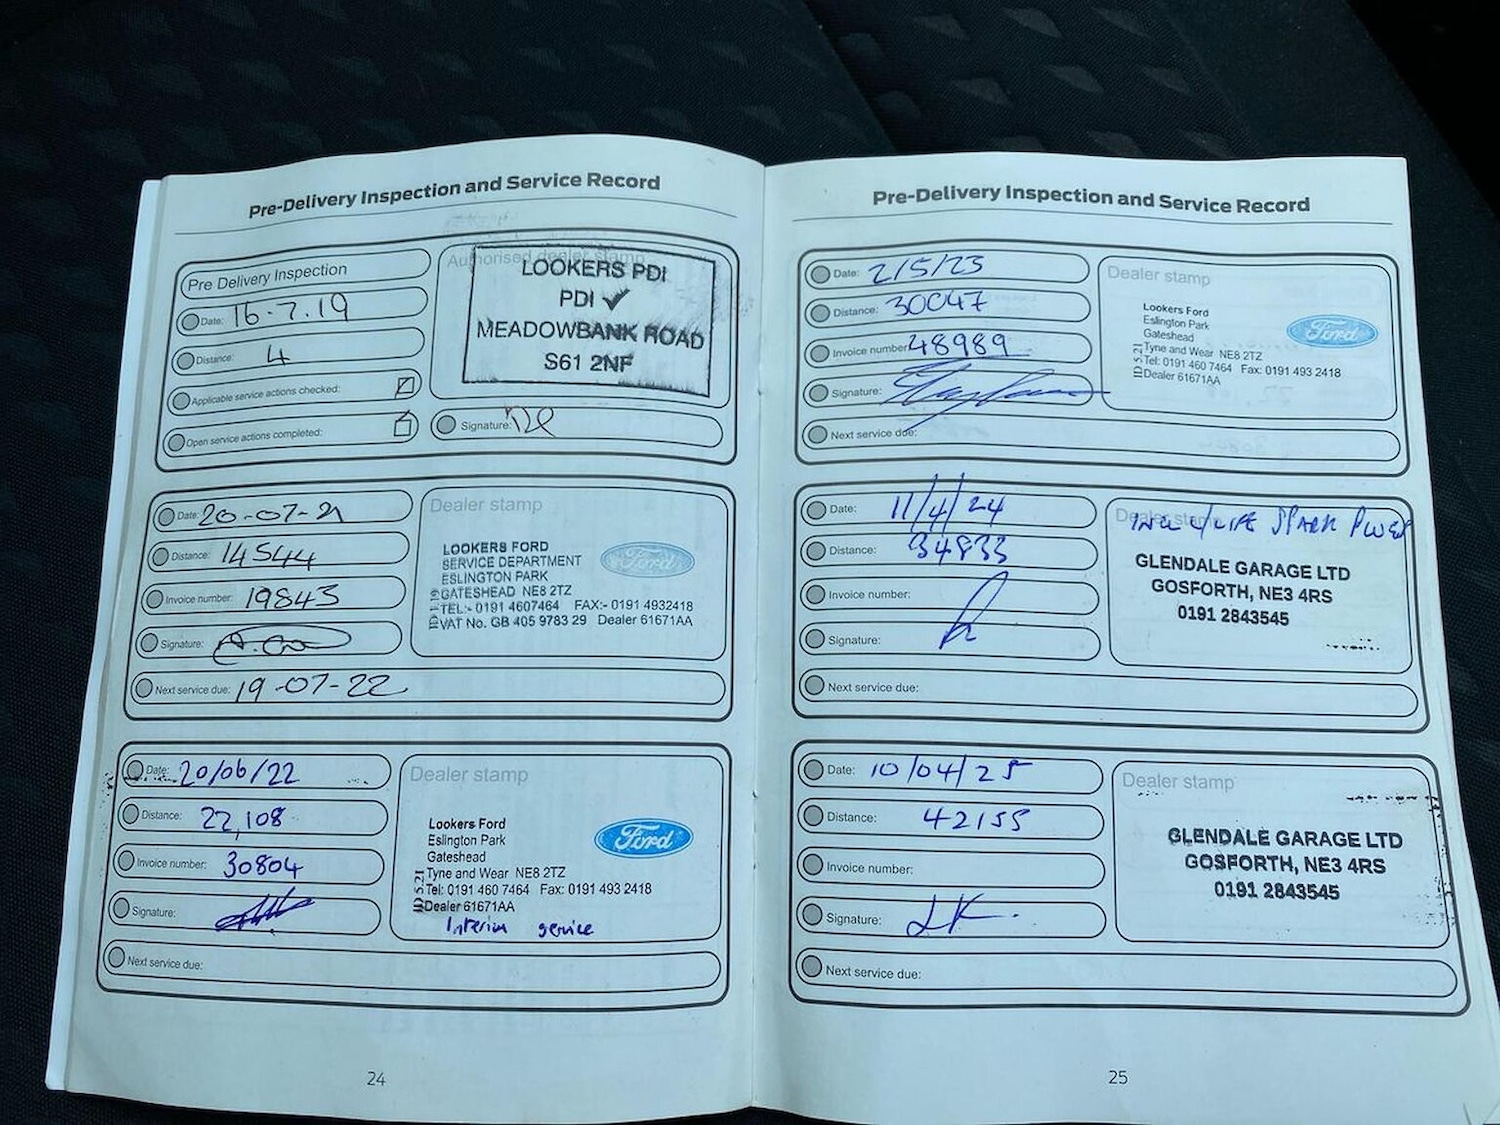 Pre-Delivery Inspection and Service Record
Pre Delivery Inspection
Date: 16.7.19
Distance: 4
Applicable service actions checked:
Open service actions completed:
Authorised dealer stamp
LOOKERS PDI
PDI ✓
MEADOWBANK ROAD
S61 2NF
Signature:
Date: 20-07-21
Distance: 14544
Invoice number: 19843
Signature:
Next service due: 19-07-22
Dealer stamp
LOOKERS FORD
SERVICE DEPARTMENT
ESLINGTON PARK
GATESHEAD NE8 2TZ
TEL:- 0191 4607464 FAX:- 0191 4932418
VAT No. GB 405 9783 29 Dealer 61671AA
Ford
Date: 20/06/22
Distance: 22,108
Invoice number: 30804
Signature:
Next service due:
Dealer stamp
Lookers Ford
Eslington Park
Gateshead
Tyne and Wear NE8 2TZ
Tel: 0191 460 7464 Fax: 0191 493 2418
Dealer 61671AA
Ford
Interim service
24
Pre-Delivery Inspection and Service Record
Date: 2/5/23
Distance: 30047
Invoice number: 48989
Signature:
Next service due:
Dealer stamp
Lookers Ford
Eslington Park
Gateshead
Tyne and Wear NE8 2TZ
Tel: 0191 460 7464 Fax: 0191 493 2418
Dealer 61671AA
Ford
Date: 11/4/24
Distance: 34833
Invoice number:
Signature:
Next service due:
Dealer stamp
SPARK PLUGS
GLENDALE GARAGE LTD
GOSFORTH, NE3 4RS
0191 2843545
Date: 10/04/25
Distance: 42155
Invoice number:
Signature:
Next service due:
Dealer stamp
GLENDALE GARAGE LTD
GOSFORTH, NE3 4RS
0191 2843545
25